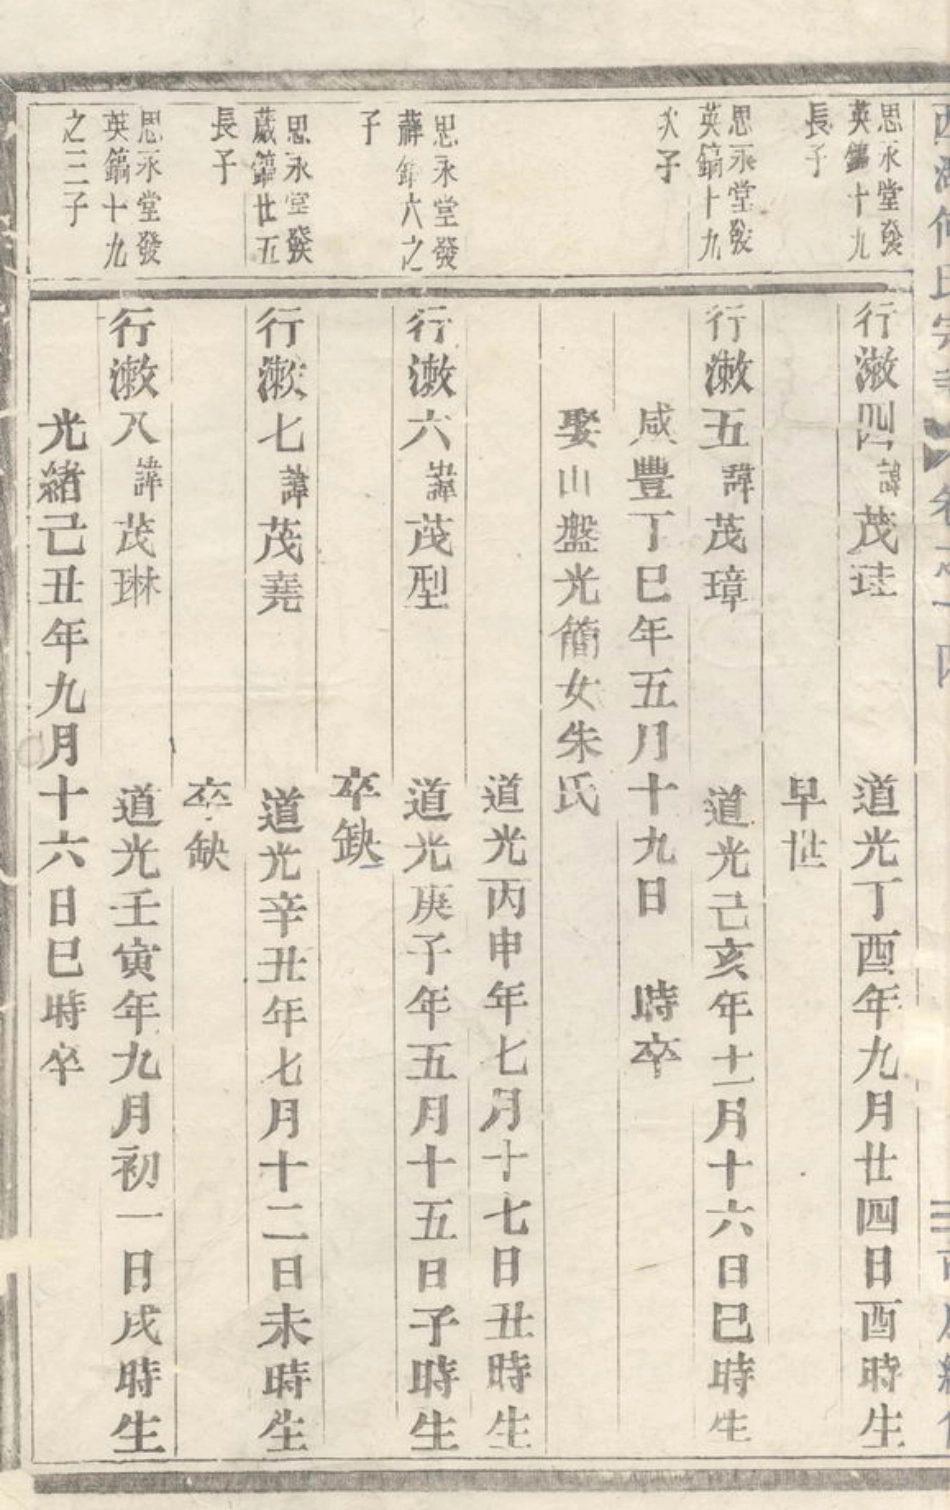 思永堂發
英鎬十九
長子
行漖四諱茂珪 道光丁酉年九月廿四日酉時生
早世
思永堂發
英鎬十九
次子
行漖五諱茂璋 道光己亥年十一月十六日巳時生
咸豐丁巳年五月十九日 時卒
娶山盤光簡女朱氏
道光丙申年七月十七日丑時生
思永堂發
六之
子
行漖六諱茂型 道光庚子年五月十五日子時生
卒缺
思永堂發
葳鎬廿五
長子
行漖七諱茂堯 道光辛丑年七月十二日未時生
卒缺
思永堂發
英鎬十九
之三子
行漖八諱茂琳 道光壬寅年九月初一日戌時生
光緒己丑年九月十六日巳時卒